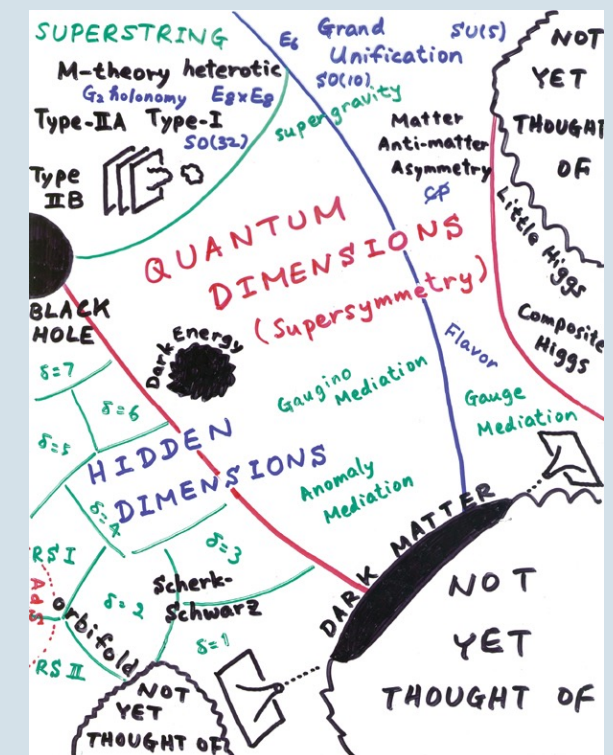 SUPERSTRING
M-theory heterotic
G₂ holonomy E₈×E₈
Type-IIA Type-I
SO(32)
Type
IIB
E₆ Grand SU(5)
Unification
SO(10)
supergravity
Matter
Anti-matter
Asymmetry
CP
NOT
YET
THOUGHT
OF
Little Higgs
Composite
Higgs
QUANTUM
DIMENSIONS
(Supersymmetry)
BLACK
HOLE
Dark Energy
Flavor
Gaugino
Mediation
Gauge
Mediation
Anomaly
Mediation
HIDDEN
DIMENSIONS
δ=7
δ=6
δ=5
δ=4
δ=3
δ=2
δ=1
RS I
AdS
orbifold
RS II
Scherk-
Schwarz
DARK MATTER
NOT
YET
THOUGHT OF
NOT
YET
THOUGHT OF